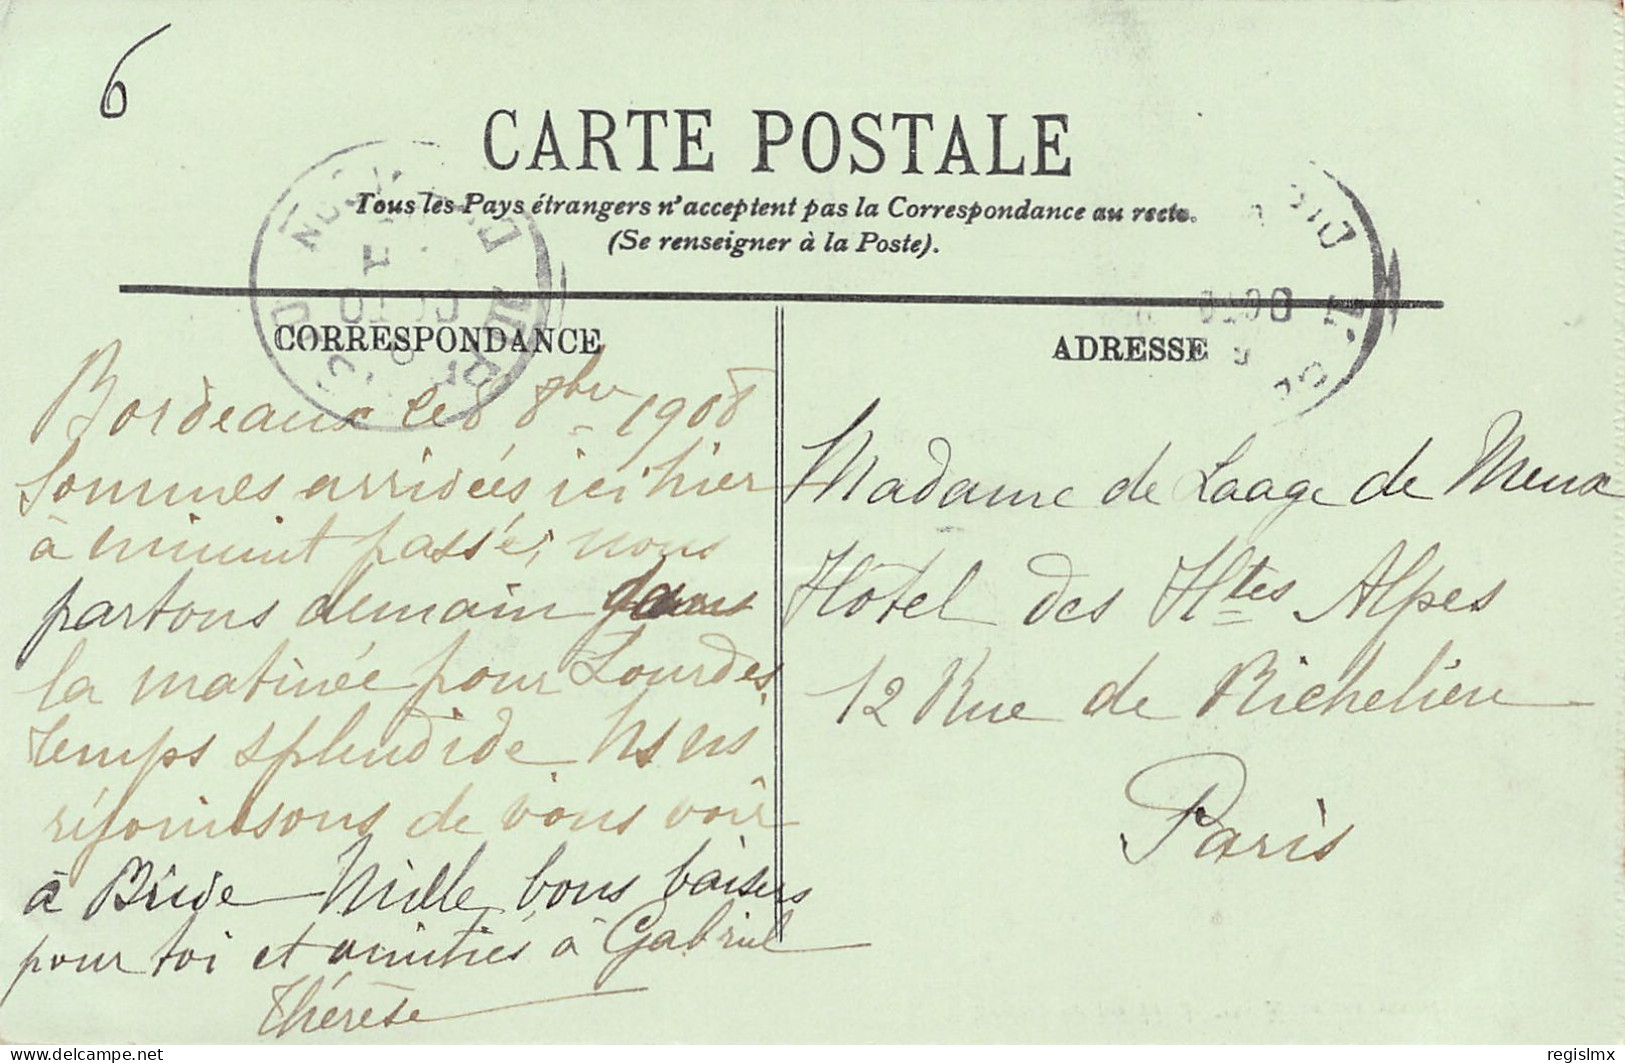 6
CARTE POSTALE
Tous les Pays étrangers n'acceptent pas la Correspondance au recto.
(Se renseigner à la Poste).
CORRESPONDANCE
Bordeaux le 8 8bre 1908
Sommes arrivées ici hier
à minuit passé; nous
partons demain dans
la matinée pour Lourdes,
temps splendide. Ns ns
réjouissons de vous voir
à Brive Mille bons baisers
pour toi et amitiés à Gabriel
Thérèse
ADRESSE
Madame de Laage de Meux
Hôtel des Htes Alpes
12 Rue de Richelieu
Paris
delcampe.net
regislmx